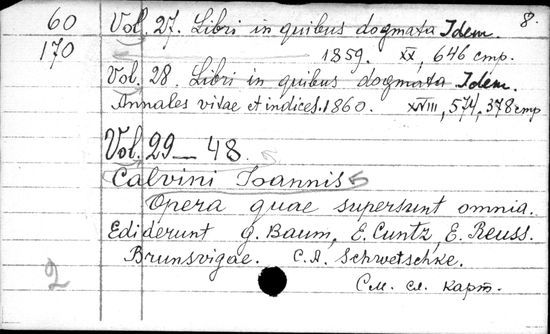 60 Vol. 27. Libri in quibus dogmata Idem. 8.
170 1859. XX, 646 стр.
Vol. 28. Libri in quibus dogmata Idem.
Annales vitae et indices. 1860. XVIII, 574, 378 стр
Vol. 29 — 48.
Calvini Ioannis
Opera quae supersunt omnia.
Ediderunt G. Baum, E. Cuntz, E. Reuss.
2 Brunsvigae. C. A. Schwetschke.
См. сл. карт.